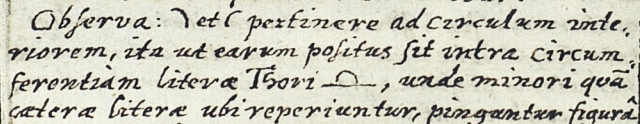 Observa: Ɔ et C pertinere ad circulum inte-
riorem, ita ut earum positus sit intra circum-
ferentiam literæ Thori, unde minori quã
cæteræ literæ ubi reperiuntur, pingantur figurâ